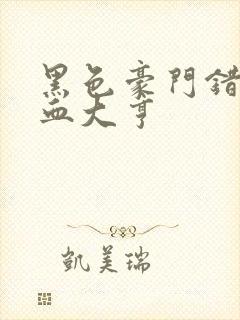 黑色豪門錯
血大亨
凱美瑞